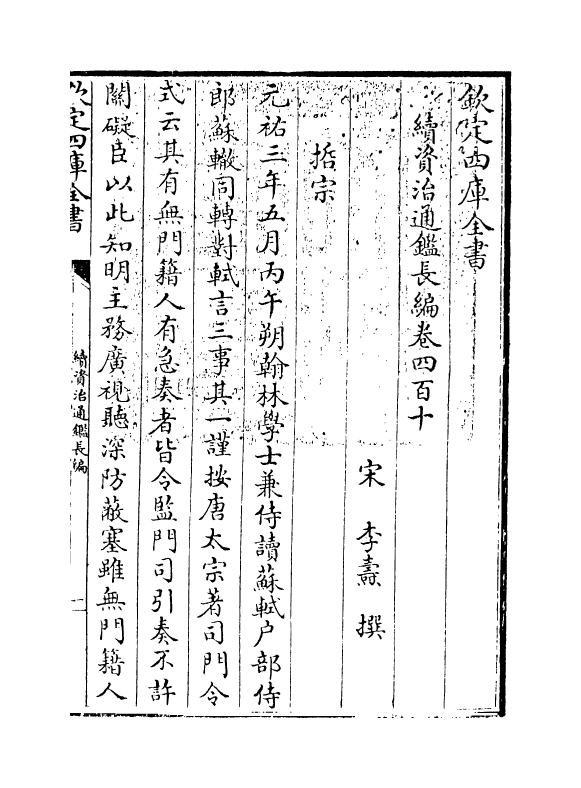 欽定四庫全書
續資治通鑑長編卷四百十
宋 李燾 撰
哲宗
元祐三年五月丙午朔翰林學士兼侍讀蘇軾户部侍
郎蘇轍同轉對軾言三事其一謹按唐太宗著司門令
式云其有無門籍人有急奏者皆令監門司引奏不許
關礙臣以此知明主務廣視聽深防蔽塞雖無門籍人
欽定四庫全書
續資治通鑑長編
一